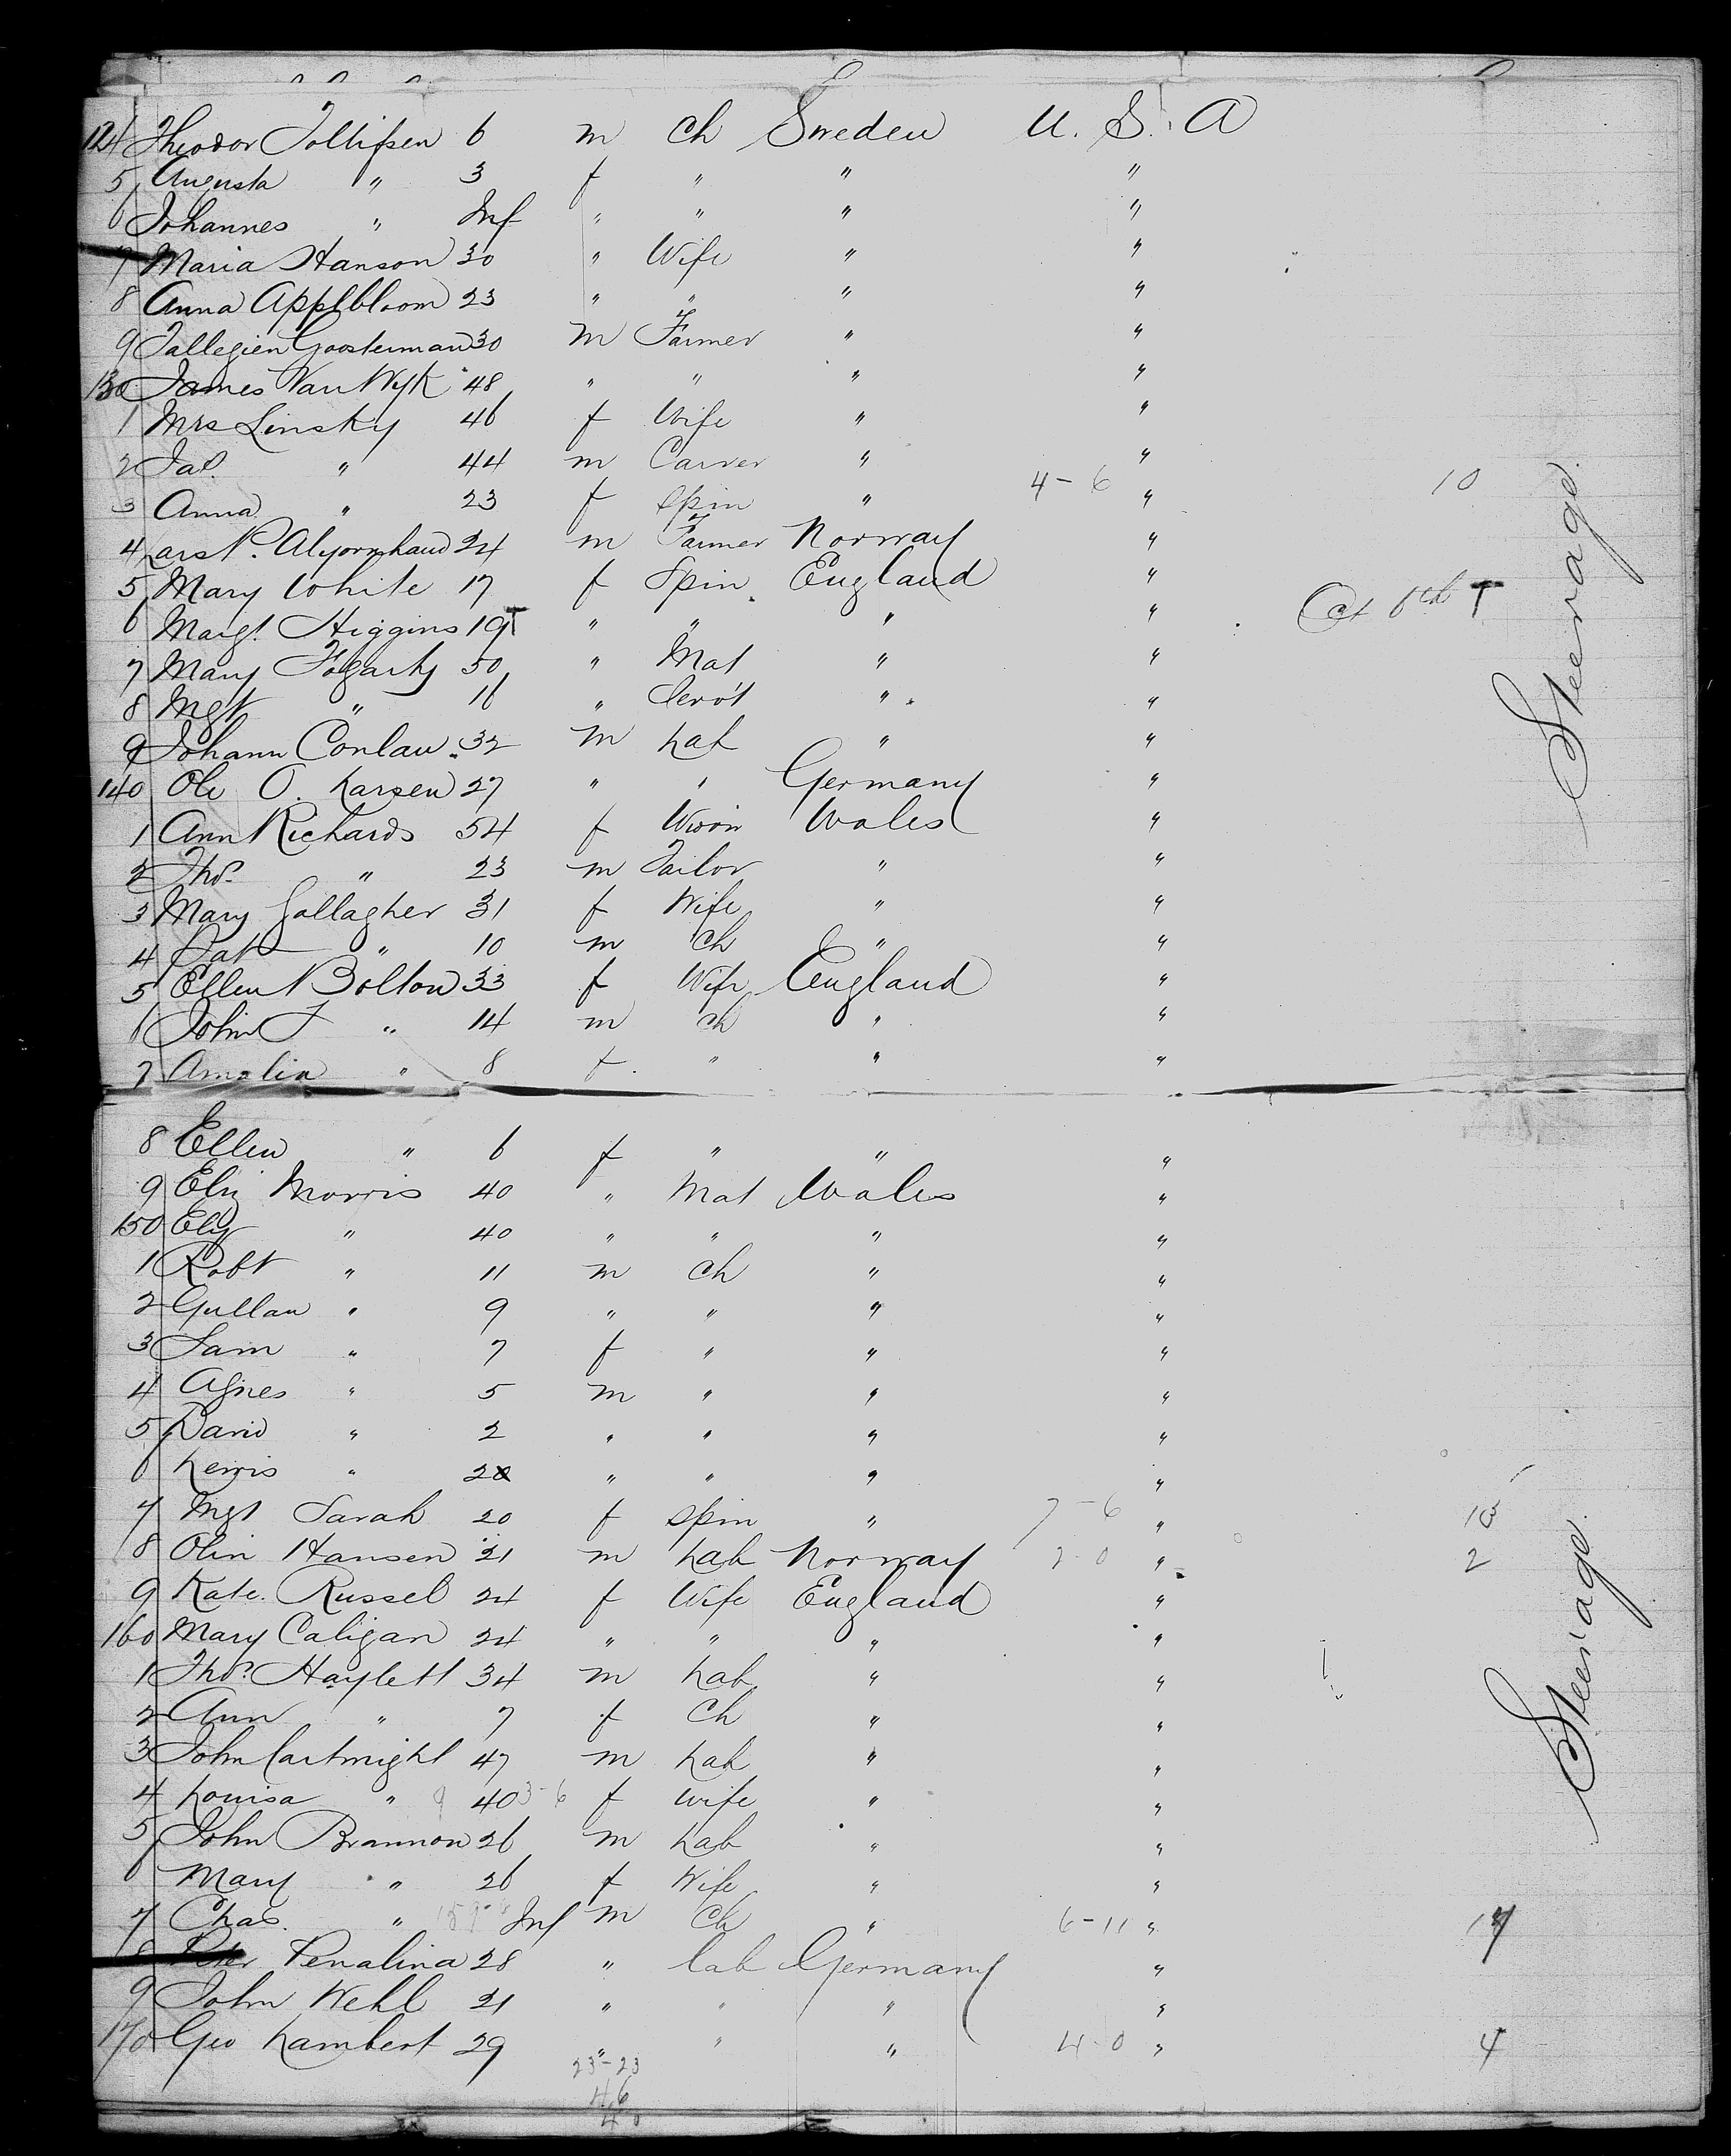 124 Theodor Tollifsen 6 m ch Sweden U. S. A
5 Augusta " 3 f " " "
6 Johannes " Inf " " " "
7 Maria Hanson 30 " Wife " "
8 Anna Applbloom 23 " " " "
9 Tallegien Goosterman 30 m Farmer " "
130 James Van Wyk 48 " " " "
1 Mrs Linsky 46 f Wife " "
2 Jas. " 44 m Carver " "
3 Anna " 23 f spin " 4-6 " 10
4 Lars P. 24 m Farmer Norway "
5 Mary White 17 f Spin England "
6 Margt. Higgins 19 T " " " " 6th T
7 Mary Fogarty 50 " Mat " "
8 Mgt " 16 " Serv't " "
9 Johann Conlau 32 m Lab " "
140 Ole O. Larsen 27 " " Germany "
1 Ann Richards 54 f Wales "
2 Thos. " 23 m Tailor " "
3 Mary Gallagher 31 f Wife " "
4 Pat " 10 m ch " "
5 Ellen Bolton 33 f Wife England "
6 John J " 14 m ch " "
7 Amelia " 8 f " " "
8 Ellen " 6 f " " "
9 Eliz Morris 40 " Mat Wales "
150 Eliz " 40 " " " "
1 Robt " 11 m ch " "
2 Gullan " 9 " " " "
3 Sam " 7 f " " "
4 Agnes " 5 m " " "
5 David " 2 " " " "
6 Lewis " 20 " " " "
7 Mgt Sarah 20 f spin " 7-6 " 13
8 Olin Hansen 21 m Lab Norway 2-0 " 2
9 Kate Russel 24 f Wife England "
160 Mary Caligan 24 " " " "
1 Thos. Haylett 34 m Lab " "
2 Ann " 7 f Ch " "
3 John Cartwright 47 m Lab " "
4 Louisa " 9 40 3-6 f Wife " "
5 John Brannon 26 m Lab " "
6 Mary " 26 f Wife " "
7 Chas. " Inf m Ch " 6-11 " 17
8 Peter Penalina 28 " Lab Germany "
9 John Wehl 21 " " " "
170 Geo Lambert 29 " " " 4-0 " 4
23-23
46
40
Steerage.
Steerage.